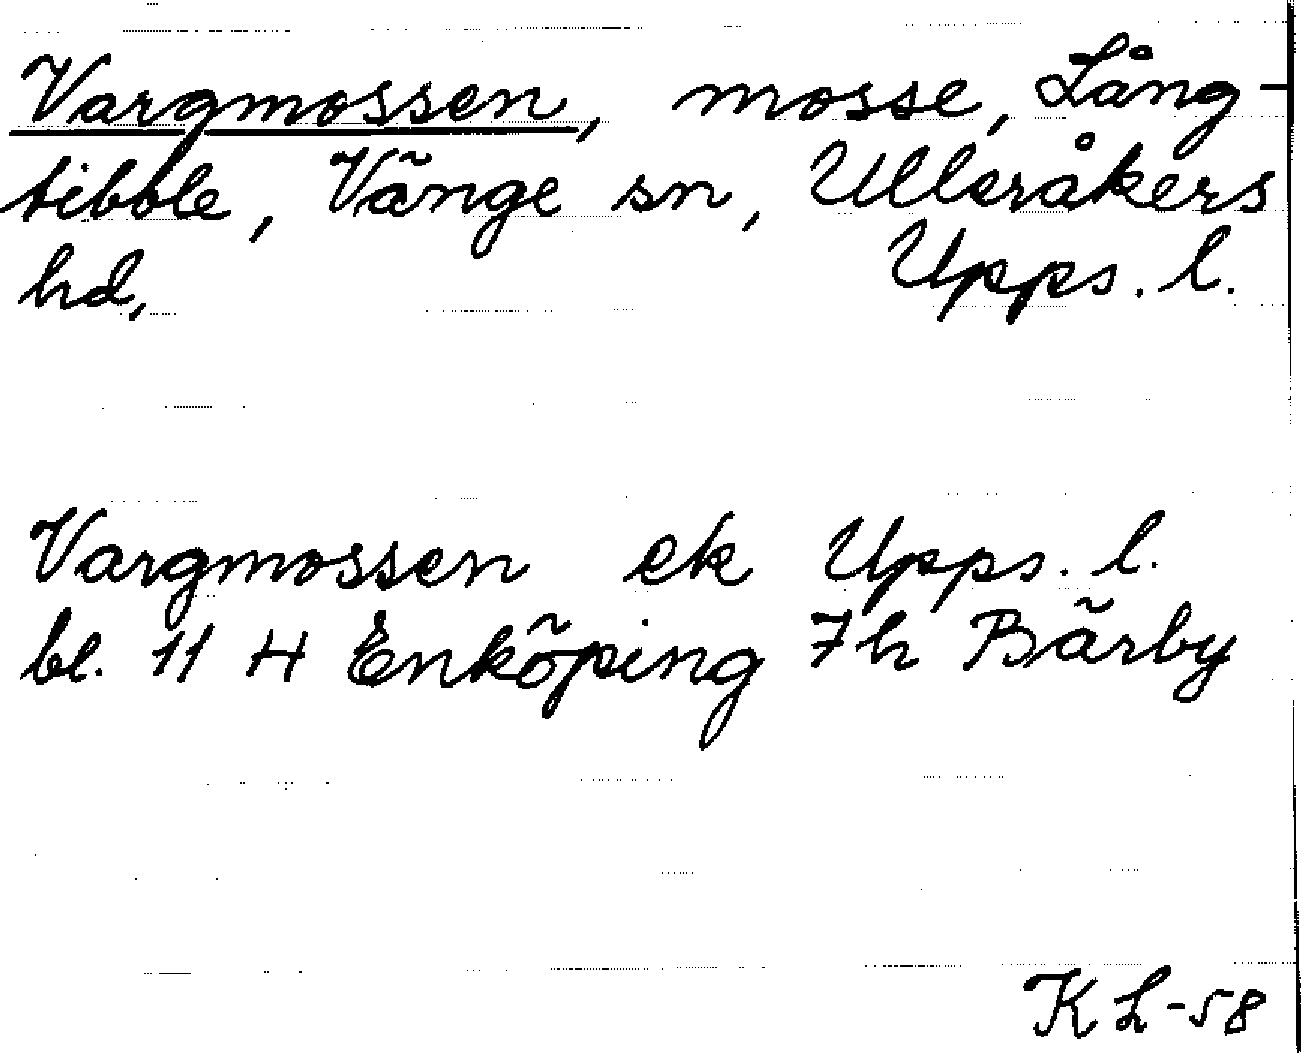 Vargmossen, mosse, Lång-
tibble, Vänge sn, Ulleråkers
hd, Upps. l.
Vargmossen ek Upps. l.
bl. 11 H Enköping 7h Bärby
KL-58